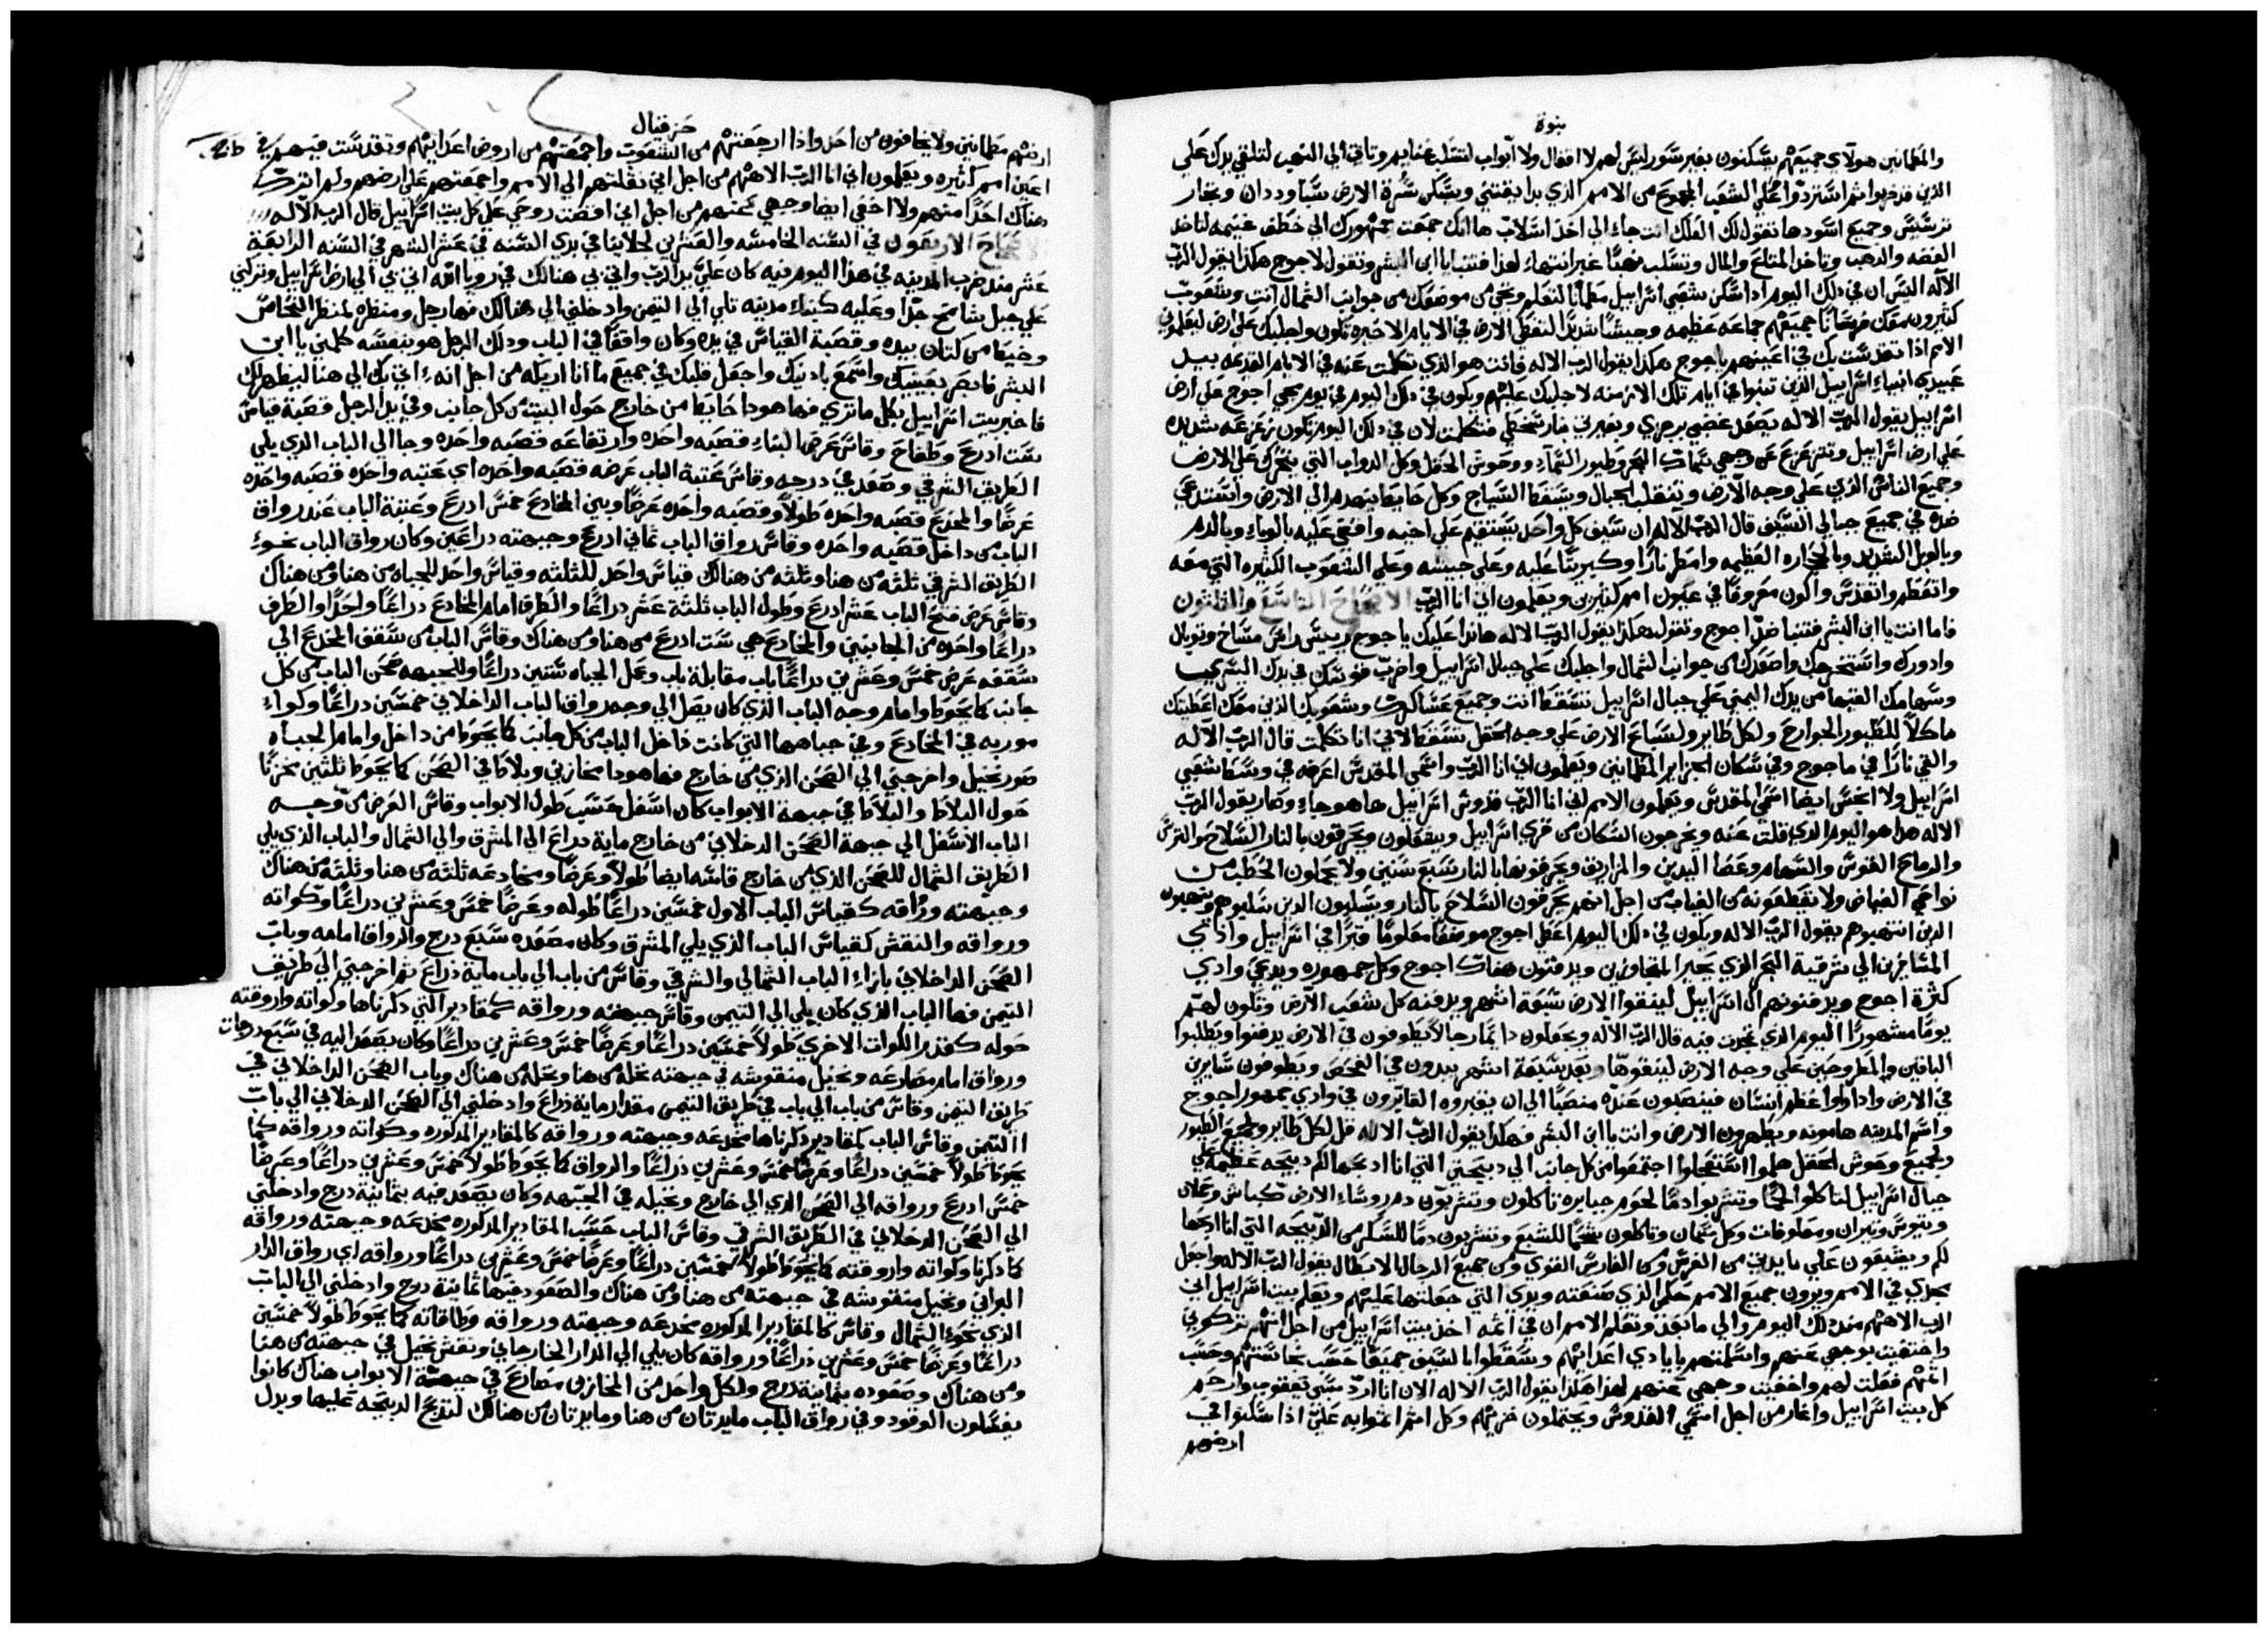 نبوة
والمطمانين هولآي جميعهم يسكنون بغير سور ليس لهم لا اقفال ولا أبواب لتسلب غنايم وتاتي الي النهب لتلقي يدك علي
الذين قد خربوا ثم استردوا علي الشعب المجموع من الامم الذي بدا يقتني ويسكن سرة الارض سبا وددان وتجار
ترسيس وجميع اسودها تقول لك العلك انت جاء الي اخذ اسلاب ها انك جمعت جمهورك الي خطف غنيمه لتاخذ
الفضه والذهب وتاخذ المتاع والمال وتسلب نهبًا غير انتهاء لهذا فتنبا يا ابن البشر وتقول لاجوج هكذا يقول الرب
الآله اليس ان في ذلك اليوم اذا سكن شعبي اسراييل مطمأنا لتعلم وتجي من موضعك من جوانب الشمال انت وشعوب
كثيرون معك فرسانًا جميعهم جماعه عظيمه وجيشًا شديدًا لتغطي الارض في الايام الاخيره تكون واجلبك علي ارضي ليعلموني
الامم اذا تقدست بك في اعينهم يا جوج هكذا يقول الرب الاله فانت هو الذي تكلمت عنه في الايام القديمه بيد
عبيدي انبياء اسراييل الذين تنبوا في ايام تلك الازمنه لاجلبك عليهم ويكون في ذلك اليوم في يوم مجي اجوج علي ارض
اسراييل يقول الرب الاله يصعد غضبي برجزي وبغيرتي بنار سخطي فتكلمت لان في ذلك اليوم تكون زعزعه شديده
علي ارض اسراييل وتتزعزع عن وجهي سماك البحر وطيور السمآء ووحوش الحقل وكل الدواب التي تتحرك علي الارض
وجميع الناس الذي علي وجه الارض وتنقلب الجبال ويسقط السياج وكل حايط ينهدم الي الارض واستدعي
ضده في جميع جبالي السيف قال الرب الآله ان سيف كل واحد يستقيم علي اخيه واقضي عليه بالوباء وبالدم
وبالوبل الشديد وبالحجاره العظيمه وامطر نارًا وكبريتًا عليه وعلي جيشه وعلي الشعوب الكثيره التي معه
واتعظم واتقدس واكون معروفًا في عيون امم كثيرين ويعلمون اني انا الرب الاصحاح التاسع والثلثون
فاما انت يا ابن البشر فتنبا ضدّ اجوج وتقول هكذا يقول الرب الاله هانذا عليك يا جوج رييس راس مساخ وتوبال
وادورك واستخرجك واصعدك من جوانب الشمال واجلبك علي جبال اسراييل واضرب قوسك في يدك اليسري
وسهامك القيها من يدك اليمني علي جبال اسراييل تسقط انت وجميع عساكرك وشعوبك الذين معك اعطيتك
ماكلاً للطيور الجوارح ولكل طاير ولسباع الارض علي وجه الحقل تسقط لاني انا تكلمت قال الرب الآله
والقي نارًا في ماجوج وفي سكان الجزاير المطمانين ويعلمون اني انا الرب واسمي المقدس اعرفه في وسط شعبي
اسراييل ولا انجس ايضا اسمي المقدس ويعلمون الامم اني انا الرب قدوس اسراييل ها هو جاء وصار يقول الرب
الاله هذا هو اليوم الذي قلت عنه ويخرجون السكان من قري اسراييل ويشعلون ويحرقون بالنار السلاح والترس
والرماح القوس والسهام وعصا اليدين والمزاريق ويحرقونها بالنار سبع سنين ولا يحملون الحطب من
نواحي الغياض ولا يقطعونه من الغياب من اجل انهم يحرقون السلاح بالنار ويسلبون الذين سلبوهم وينهبون
الذين انتهبوهم يقول الرب الاله ويكون في ذلك اليوم اعطي اجوج موضعًا معلومًا قبرًا في اسراييل وادي
المسافرين الي شرقية البحر الذي يحير المجاوزين ويدفنون هناك اجوج وكل جمهوره ويدعي وادي
كثرة اجوج ويدفنونهم آل اسراييل لينقوا الارض سبعة اشهر ويدفنه كل شعب الارض وتكون لهم
يومًا مشهورًا اليوم الذي تمجدت فيه قال الرب الاله ويجعلون دايمًا رجالاً يطوفون في الارض يدفنوا ويطلبوا
الباقين والمطروحين علي وجه الارض لينقوها وبعد سبعة اشهر يبدون في الفحص ويطوفون سايرين
في الارض واذا راوا عظم انسان فينصبون عنده منصبًا الي ان يقبروه القابرون في وادي جمهور اجوج
واسم المدينه هامونه ويطهرون الارض وانت يا ابن البشر فهكذا يقول الرب الاله قل لكل طاير ولجميع الطيور
ولجميع وحوش الحقل هلموا استعجلوا اجتمعوا من كل جانب الي ذبيحتي التي انا اذبحها لكم ذبيحه عظيمة علي
جبال اسراييل لتاكلوا لحمًا وتشربوا دمًا لحوم جبابره تاكلون وتشربون دم روساء الارض كباش وحملان
وتيوس وثيران ومعلوفات وكل سمان وتاكلون شحمًا للشبع وتشربون دمًا للسكر من الذبيحه التي انا اذبحها
لكم وتشبعون علي مايدتي من الفرس ومن الفارس القوي ومن جميع الرجال الابطال يقول الرب الاله واجعل
مجدي في الامم ويرون جميع الامم حكمي الذي صنعته ويدي التي جعلتها عليهم ويعلم بيت اسراييل اني
الرب الاههم منذ ذلك اليوم والي ما بعد وتعلم الامم ان في اثمه اخذ بيت اسراييل من اجل انهم تركوني
واختفيت بوجهي عنهم واسلمتهم بايادي اعدايهم وسقطوا بالسيف جميعًا حسب نجاستهم وحسب
اثمهم فعلت لهم واخفيت وجهي عنهم لهذا هكذا يقول الرب الاله الان انا ارد سبي يعقوب وارحم
كل بيت اسراييل واغار من اجل اسمي القدوس ويحتملون خزيهم وكل اثم اثموا به علي اذا سكنوا في
ارضهم
حزقيال
ارضهم مطمانين ولا يخافون من احد واذا ارجعتهم من الشعوب واجمعتهم من اروض اعدايهم وتقدست فيهم في
اعين امم كثيره ويعلمون اني انا الرب الاههم من اجل اني نقلتهم الي الامم واجمعتهم علي ارضهم ولم اترك
هناك احدًا منهم ولا اخفي ايضا وجهي عنهم من اجل اني افضت روحي علي كل بيت اسراييل قال الرب الآله
الاصحاح الاربعون في السنه الخامسه والعشرين لجلاينا في بدي السنه في عشر الشهر في السنه الرابعة
عشر منذ ضرب المدينه في هذا اليوم فيه كان عليّ يد الرب واتي بي هنالك في رويا الله اتي بي الي ارض اسراييل وتركني
علي جبل شامخ جدًا وعليه كبناء مدينه تلي الي التيمن وادخلني الي هنالك فها رجل ومنظره كمنظر النحاس
وخيط من كتان بيده وقصبة القياس في يده وكان واقفًا في الباب وذلك الرجل هو بنفسه كلمني يا ابن
البشر فابصر بعينيك واسمع باذنيك واجعل قلبك في جميع ما انا اريكه من اجل انه اتي بك الي هنا ليظهر لك
فاخبر بيت اسراييل بكل ما تري فها هوذا حايط من خارج حول البيت من كل جانب وفي يد الرجل قصبة قياس
ست ادرع وطفاح وقاس عرض البناء قصبه واحده وارتفاعه قصبه واحده وجا الي الباب الذي يلي
الطريق الشرقي وصعد في درجه وقاس عتبة الباب عرضه قصبه واحده اي عتبه واحده قصبه واحده
عرضًا والمخدع قصبه واحده طولاً وقصبه واحده عرضًا وبين المخادع خمس ادرع وعتبة الباب عند رواق
الباب من داخل قصبه واحده وقاس رواق الباب ثماني ادرع وجبهته دراعين وكان رواق الباب نحو
الطريق الشرقي ثلثه من هنا وثلثه من هنالك قياس واحد للثلثه وقياس واحد للجباه من هنا ومن هناك
وقاس عرض فتح الباب عشر ادرع وطول الباب ثلثة عشر دراعًا والطرف امام المخادع دراعًا واحدًا والطرف
دراعًا واحده من الجانبين والمخادع هي ست ادرع من هنا ومن هناك وقاس الباب من سقف المخدع الي
سقفه عرض خمس وعشرين دراعًا باب مقابلة باب وعمل الجباه ستين دراعًا وللجبهه صحن الباب من كل
جانب كما يحوط وامام وجه الباب الذي كان يصل الي وجه رواق الباب الداخلاني خمسين دراعًا وكواء
موربه في المخادع وفي جباهها التي كانت داخل الباب من كل جانب كما يحوط من داخل وامام الجباه
صور نخيل واخرجني الي الصحن الذي من خارج فها هوذا مخازن وبلاط في الصحن كما يحوط ثلثين مخزنًا
حول البلاط والبلاط في جبهة الابواب كان اسفل حسب طول الابواب وقاس العرض من وجه
الباب الاسفل الي جبهة الصحن الدخلاني من خارج ماية دراع الي المشرق والي الشمال والباب الذي يلي
الطريق الشمال للصحن الذي من خارج قاسه ايضا طولاً وعرضًا ومخادعه ثلثه من هنا وثلثه من هناك
وجبهته ورواقه كقياس الباب الاول خمسين دراعًا طوله وعرضًا خمس وعشرين دراعًا وكواته
ورواقه والنقش كقياس الباب الذي يلي المشرق وكان مصعده سبع درج والرواق امامه وباب
الصحن الداخلاني بازاء الباب الشمالي والشرقي وقاس من باب الي باب ماية دراع ثم اخرجني الي طريق
التيمن فها الباب الذي كان يلي الي التيمن وقاس جبهته ورواقه كمقادير التي ذكرناها وكواته واروقته
حوله كقدر الكوات الاخري طولاً خمسين دراعًا وعرضًا خمس وعشرين دراعًا وكان يصعد اليه في سبع درجات
ورواق امام مصارعه ونخيل منقوشه في جبهته نخله من هنا ونخله من هناك وباب الصحن الداخلاني في
طريق التيمن وقاس من باب الي باب في طريق التيمن مقدار ماية ذراع وادخلني الي الصحن الدخلاني الي باب
التيمن وقاس الباب كمقادير ذكرناها مخدعه وجبهته ورواقه كالمقادير المذكوره وكواته ورواقه كما
يحوط طولاً خمسين دراعًا وعرضًا خمس وعشرين ذراعًا والرواق كما يحوط طولاً خمس وعشرين دراعًا وعرضًا
خمس ادرع ورواقه الي الصحن الذي الي خارج ونخيله في الجبهه وكان يصعد فيه بثمانية درج وادخلني
الي الصحن الدخلاني في الطريق الشرقي وقاس الباب حسب المقادير المذكوره مخدعه وجبهته ورواقه
كما ذكرنا وكواته واروقته كما يحوط طولاً خمسين دراعًا وعرضًا خمس وعشرين دراعًا ورواقه اي رواق الدار
البراني ونخيل منقوشه في جبهته من هنا ومن هناك والصعود فيها ثمانية درج وادخلني الي الباب
الذي نحو الشمال وقاس كالمقادير المذكوره مخدعه وجبهته ورواقه وطاقاته كما يحوط طولاً خمسين
دراعًا وعرضًا خمس وعشرين ذراعًا ورواقه كان يلي الي الدار الخارجاني ونقش نخيل في جبهته من هنا
ومن هناك وصعوده بثمانية درج ولكل واحد من المخازن مصارع في جبهة الابواب هناك كانوا
يغسلون الوقود وفي رواق الباب مايدتان من هنا ومايدتان من هنالك لتذبح الذبيحه عليها وبدل